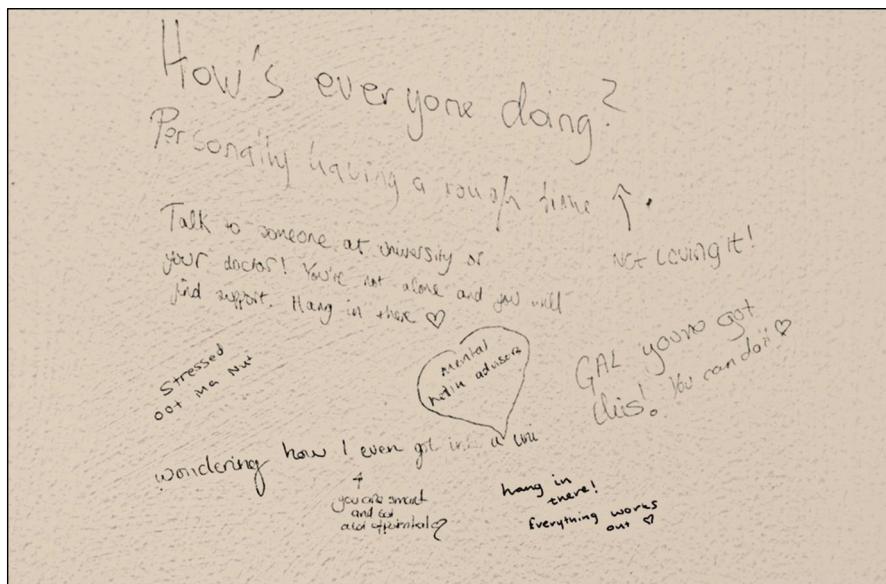 How's everyone doing?
Personally having a rough time ↑
Not Loving It!
Talk to someone at university or
your doctor! You're not alone and you will
find support. Hang in there ♡
Stressed
oot ma Nut
mental
advisors
GAL you've got
this! You can do it ♡
wondering how I even got into a uni
↑
you are smart
and got
a lot of potential ♡
hang in
there!
Everything works
out ♡